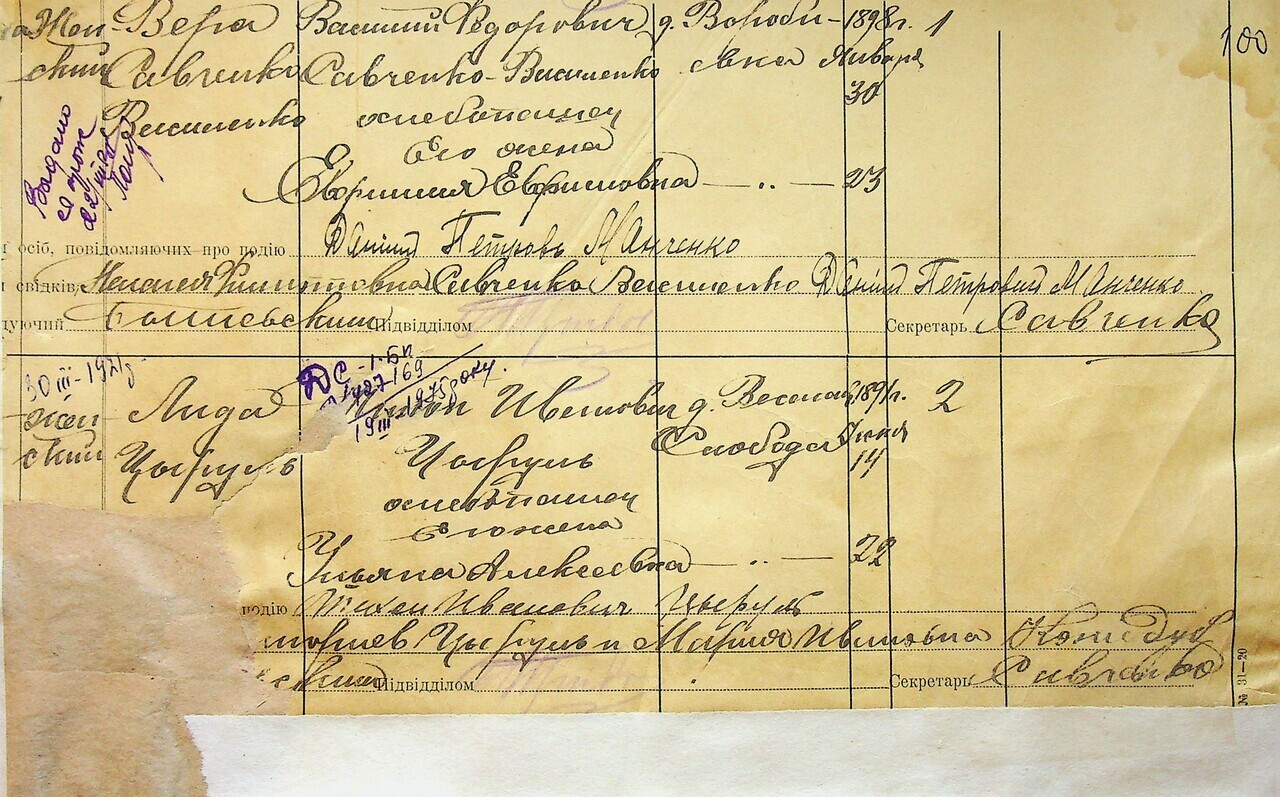 Жен- Вера Василий Федорович д. Вороби- 1898 г. 1 100
ский Савченко Савченко-Василенко евка Января
Василенко хлебопашец 30
Его жена
Евфимовна — „ — 23
Выдано
осіб, повідомляючих про подію Даниил Петровъ Манченко
свідків Савченко Василенко Даниил Петрович Манченко
дуючий Підвідділом Секретарь Савченко
30 III - 1921 г. ДС-1-БП
427169
19 III 1975 року.
жен- Лида Тихон Иванович д. Веселая 1891 г. 2
ский Цыруль Цыруль Слобода Июня
хлебопашец 14
Его жена
Ульяна Алексеевна — „ — 22
подію Тихон Иванович Цыруль
Цыруль и Мария Ивановна
Підвідділом Секретарь Савченко
№ 31—20